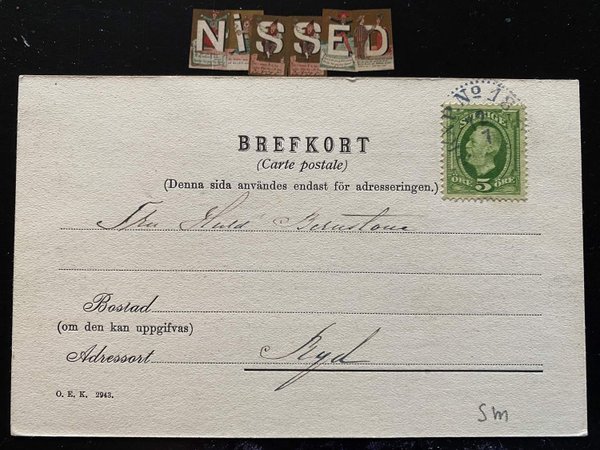 NISSED
No 18
SVERIGE
ÖRE 5 ÖRE
BREFKORT
(Carte postale)
(Denna sida användes endast för adresseringen.)
Fru Huld
Bostad
(om den kan uppgifvas)
Adressort Ryd
O. E. K. 2943.
Sm